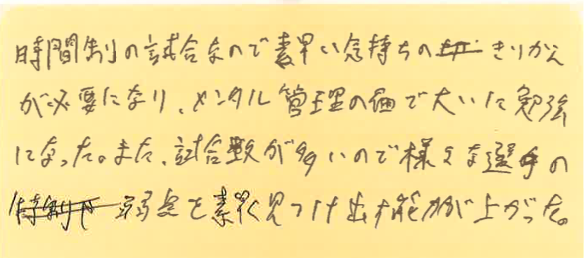 時間制の試合なので素早い気持ちのきりかえ
が必要になり、メンタル管理の面で大いに勉強
になった。また、試合数が多いので様々な選手の
弱点を素早く見つけ出す能力が上がった。